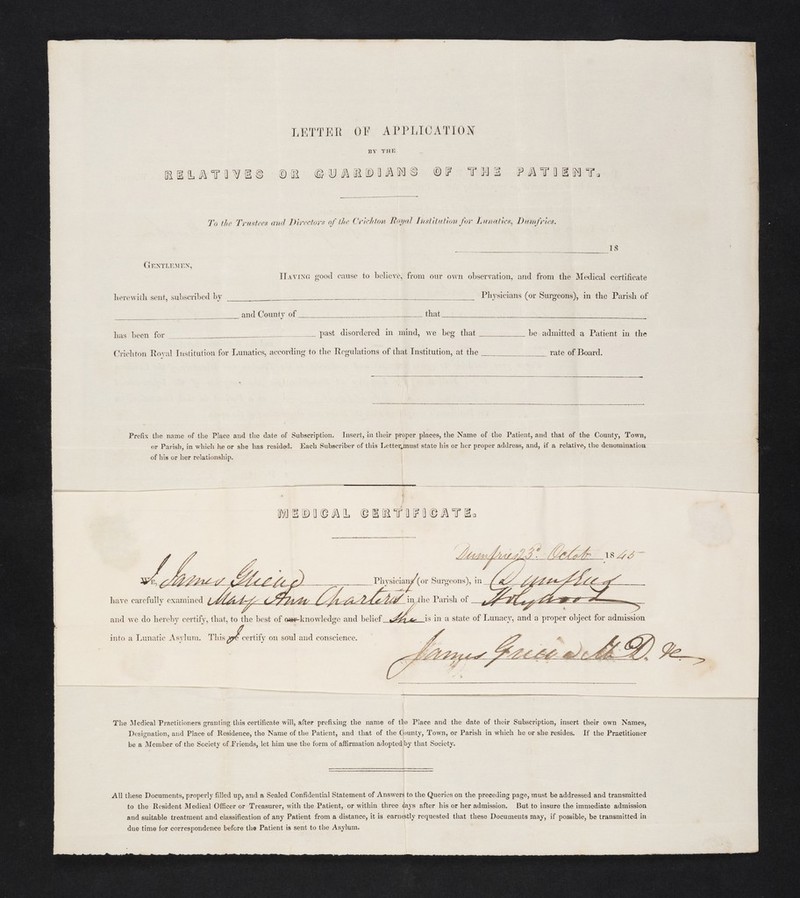 LETTER OF APPLICATION
BY THE
RELATIVES OR GUARDIANS OF THE PATIENT.
To the Trustees and Directors of the Crichton Royal Institution for Lunatics, Dumfries.
18
GENTLEMEN,
HAVING good cause to believe, from our own observation, and from the Medical certificate
herewith sent, subscribed by Physicians (or Surgeons), in the Parish of
and County of that
has been for past disordered in mind, we beg that be admitted a Patient in the
Crichton Royal Institution for Lunatics, according to the Regulations of that Institution, at the rate of Board.
Prefix the name of the Place and the date of Subscription. Insert, in their proper places, the Name of the Patient, and that of the County, Town,
or Parish, in which he or she has resided. Each Subscriber of this Letter, must state his or her proper address, and, if a relative, the denomination
of his or her relationship.
MEDICAL CERTIFICATE.
Dumfries 3d. Octobr 1845
I James Grieve Physician (or Surgeons), in Dumfries
have carefully examined Mary Ann Charteris in the Parish of Holywood
and we do hereby certify, that, to the best of our knowledge and belief She is in a state of Lunacy, and a proper object for admission
into a Lunatic Asylum. This I certify on soul and conscience.
James Grieve M.D. &c.
The Medical Practitioners granting this certificate will, after prefixing the name of the Place and the date of their Subscription, insert their own Names,
Designation, and Place of Residence, the Name of the Patient, and that of the County, Town, or Parish in which he or she resides. If the Practitioner
be a Member of the Society of Friends, let him use the form of affirmation adopted by that Society.
All these Documents, properly filled up, and a Sealed Confidential Statement of Answers to the Queries on the preceding page, must be addressed and transmitted
to the Resident Medical Officer or Treasurer, with the Patient, or within three days after his or her admission. But to insure the immediate admission
and suitable treatment and classification of any Patient from a distance, it is earnestly requested that these Documents may, if possible, be transmitted in
due time for correspondence before the Patient is sent to the Asylum.